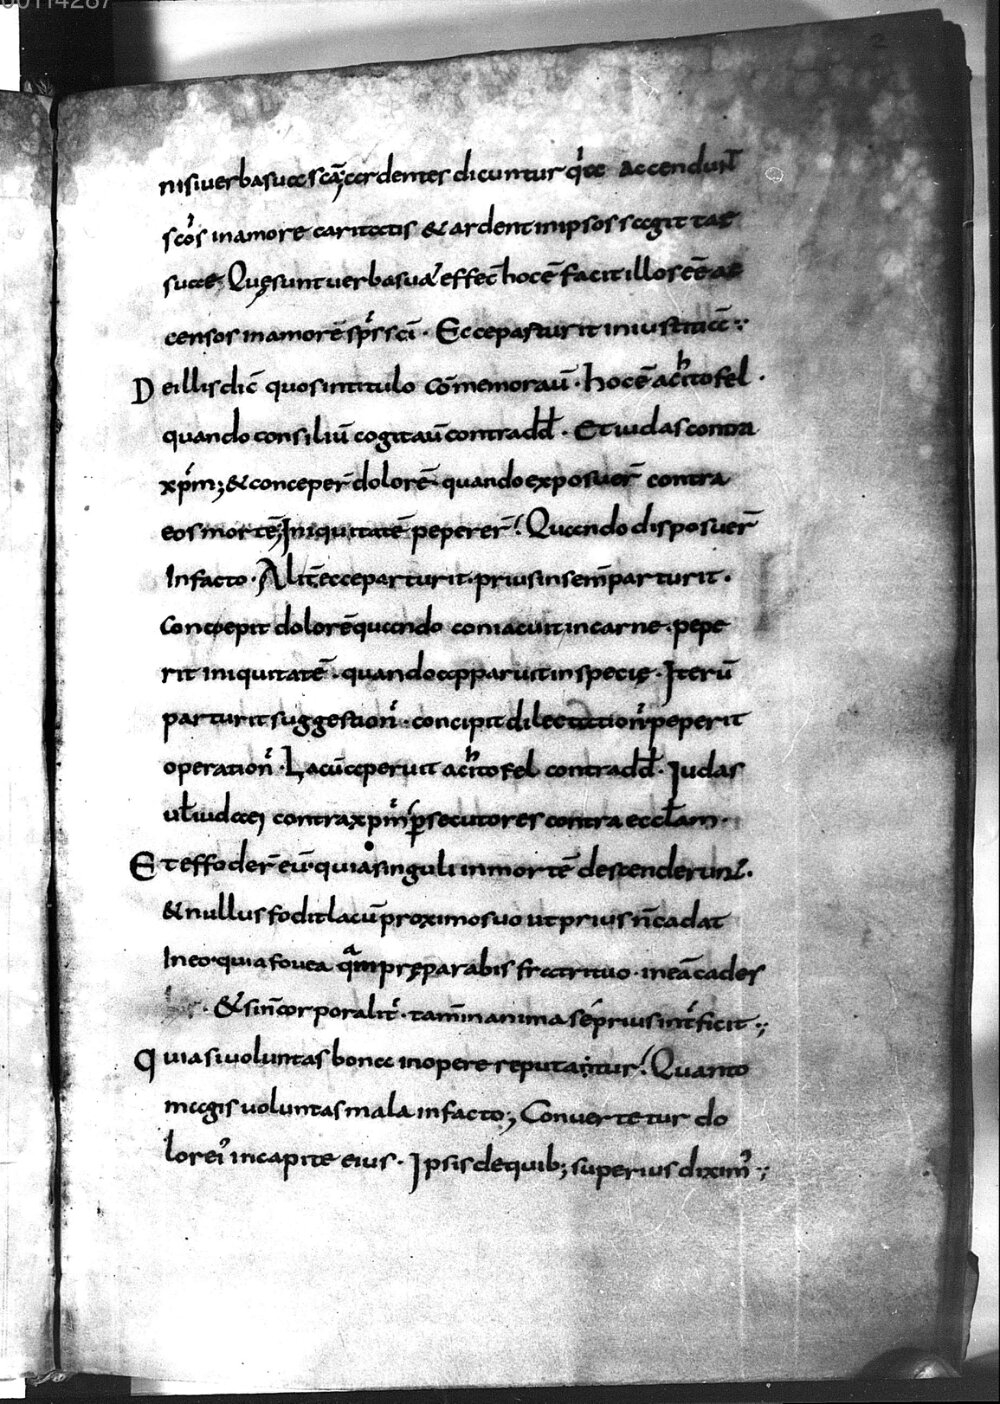 00114287
2
nisi uerba sua sc̄a; ardentes dicuntur qͥa accendunt̄
scōs in amore caritatis & ardent in ipsos sagittae
suae; Quę sunt uerba sua effec̄ hoc ē facit illos eē ac
censos in amorē sp̄s sc̄i · Ecce parturit iniustitiā :·
De illis dic̄ quos in titulo cōmemorau̅ · hoc ē achitofel ·
quando consiliū cogitau̅ contra dd̄ · Et iudas contra
xp̄m; & conceper̄ dolorē · quando exposuer̄ contra
eos mortē; Iniquitatē peperer̄ · Quando disposuer̄
In facto · Alit̄ ecce parturit · prius in sem̄ parturit ·
Concepit dolorē quando coniacuit in carne · pepe
rit iniquitatē · quando apparuit in specię · Iterū
parturit suggestion̄ · concipit dilectation̄ peperit
operation̄ · Lacū aperuit achitofel contra dd̄ · Iudas
ul̄ iudaei contra xp̄m persecutores contra eccl̄am ·
Et effoder̄ eū · quia singuli in mortē descenderunt ·
& nullus fodit lacū proximo suo ut prius n̄ cadat
In eo · quia fouea quam pręparabis fratri tuo · in eā cades
· & si n̄ corporalit̄ · tam̄ in anima sé prius int̄ficit :,
Quia si uoluntas bona in opere reputatur · Quanto
magis uoluntas mala in facto; Conuertetur do
lor ei' in capite eius · Ipsis de quib; superius dixim' :,